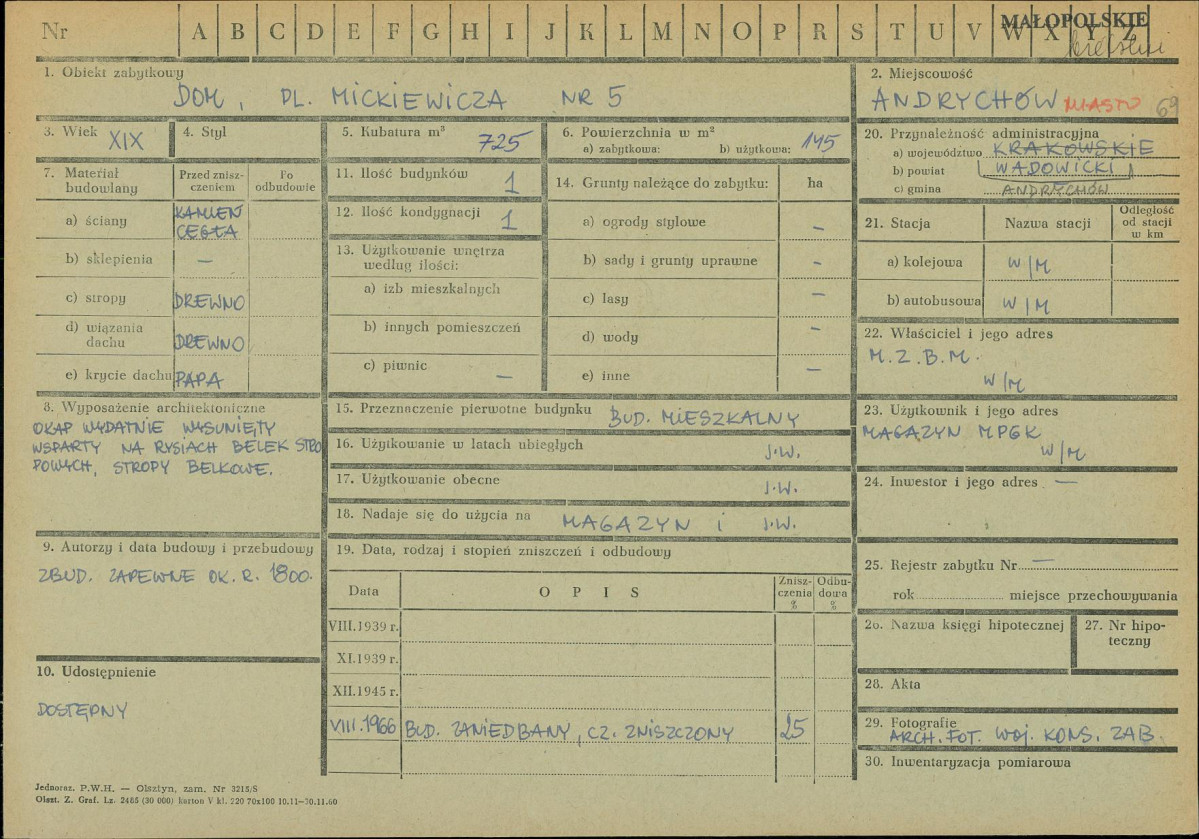 Nr A B C D E F G H I J K L M N O P R S T U V W X Y Z
MAŁOPOLSKIE
1. Obiekt zabytkowy
DOM, PL. MICKIEWICZA NR 5
2. Miejscowość
ANDRYCHÓW MIASTO 69
3. Wiek XIX
4. Styl
5. Kubatura m³ 725
6. Powierzchnia w m²
a) zabytkowa: b) użytkowa: 145
7. Materiał budowlany
Przed zniszczeniem
Po odbudowie
a) ściany KAMIEŃ CEGŁA
b) sklepienia —
c) stropy DREWNO
d) wiązania dachu DREWNO
e) krycie dachu PAPA
8. Wyposażenie architektoniczne
OKAP WYDATNIE WYSUNIĘTY
WSPARTY NA RYSIACH BELEK STRO
POWYCH, STROPY BELKOWE.
9. Autorzy i data budowy i przebudowy
ZBUD. ZAPEWNE OK. R. 1800.
10. Udostępnienie
DOSTĘPNY
11. Ilość budynków 1
12. Ilość kondygnacji 1
13. Użytkowanie wnętrza
według ilości:
a) izb mieszkalnych
b) innych pomieszczeń
c) piwnic —
14. Grunty należące do zabytku: ha
a) ogrody stylowe —
b) sady i grunty uprawne —
c) lasy —
d) wody —
e) inne —
15. Przeznaczenie pierwotne budynku BUD. MIESZKALNY
16. Użytkowanie w latach ubiegłych J.W.
17. Użytkowanie obecne J.W.
18. Nadaje się do użycia na MAGAZYN i J.W.
19. Data, rodzaj i stopień zniszczeń i odbudowy
Data OPIS Zniszczenia % Odbudowa %
VIII.1939 r.
XI.1939 r.
XII.1945 r.
VIII.1966 BUD. ZANIEDBANY, CZ. ZNISZCZONY 25
20. Przynależność administracyjna
a) województwo KRAKOWSKIE
b) powiat WADOWICKI
c) gmina ANDRYCHÓW
21. Stacja Nazwa stacji Odległość od stacji w km
a) kolejowa W/M
b) autobusowa W/M
22. Właściciel i jego adres
M.Z.B.M.
W/M
23. Użytkownik i jego adres
MAGAZYN MPGK
W/M
24. Inwestor i jego adres —
25. Rejestr zabytku Nr —
rok miejsce przechowywania
26. Nazwa księgi hipotecznej
27. Nr hipoteczny
28. Akta
29. Fotografie
ARCH. FOT. WOJ. KONS. ZAB.
30. Inwentaryzacja pomiarowa
Jednoraz. P.W.H. — Olsztyn, zam. Nr 3215/S
Olszt. Z. Graf. Lz. 2485 (30 000) karton V kl. 220 70x100 10.11—30.11.60